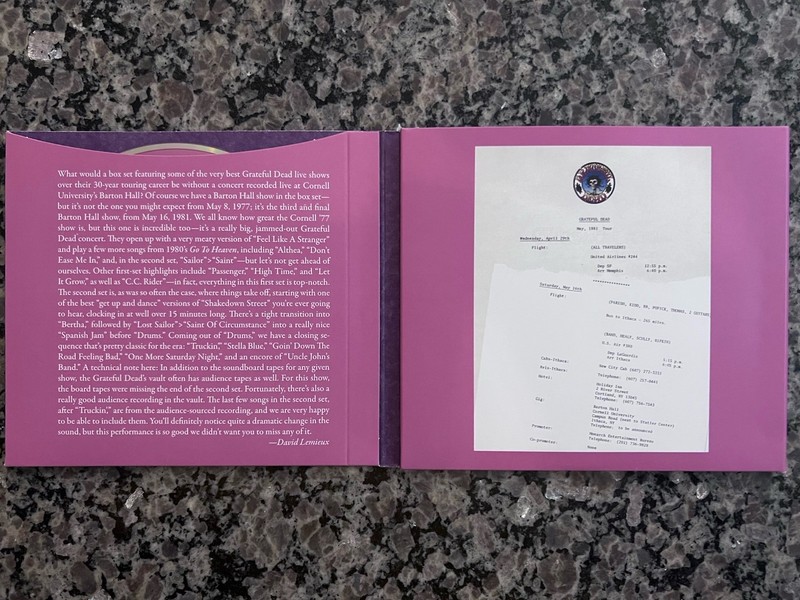 What would a box set featuring some of the very best Grateful Dead live shows
over their 30-year touring career be without a concert recorded live at Cornell
University's Barton Hall? Of course we have a Barton Hall show in the box set—
but it's not the one you might expect from May 8, 1977; it's the third and final
Barton Hall show, from May 16, 1981. We all know how great the Cornell '77
show is, but this one is incredible too—it's a really big, jammed-out Grateful
Dead concert. They open up with a very meaty version of "Feel Like A Stranger"
and play a few more songs from 1980's Go To Heaven, including "Althea," "Don't
Ease Me In," and, in the second set, "Sailor">"Saint"—but let's not get ahead of
ourselves. Other first-set highlights include "Passenger," "High Time," and "Let
It Grow," as well as "C.C. Rider"—in fact, everything in this first set is top-notch.
The second set is, as was so often the case, where things take off, starting with
one of the best "get up and dance" versions of "Shakedown Street" you're ever
going to hear, clocking in at well over 15 minutes long. There's a tight transition into
"Bertha," followed by "Lost Sailor">"Saint Of Circumstance" into a really nice
"Spanish Jam" before "Drums." Coming out of "Drums," we have a closing se-
quence that's pretty classic for the era: "Truckin'," "Stella Blue," "Goin' Down The
Road Feeling Bad," "One More Saturday Night," and an encore of "Uncle John's
Band." A technical note here: In addition to the soundboard tapes for any given
show, the Grateful Dead's vault often has audience tapes as well. For this show,
the board tapes were missing the end of the second set. Fortunately, there's also a
really good audience recording in the vault. The last few songs in the second set,
after "Truckin'," are from the audience-sourced recording, and we are very happy
to be able to include them. You'll definitely notice quite a dramatic change in the
sound, but this performance is so good we didn't want you to miss any of it.
—David Lemieux
GRATEFUL DEAD
May, 1981 Tour
Wednesday, April 29th
Flight: (ALL TRAVELERS)
United Airlines #284
Dep SF 12:55 p.m.
Arr Memphis
****************
Saturday, May 16th
Flight:
Bus to Ithaca - 250 miles.
U.S. Air
Dep LaGuardia
Arr Ithaca
Cabs-Ithaca:
Telephone: (607)
Hotel: Holiday Inn
2 River Street
Cortland, NY
Telephone: (607)
Gig: Barton Hall
Cornell University
Campus Road (next to Statler Center)
Ithaca, NY
Telephone: to be announced
Promoter: Monarch Entertainment Bureau
Telephone: (201)
Co-promoter: None